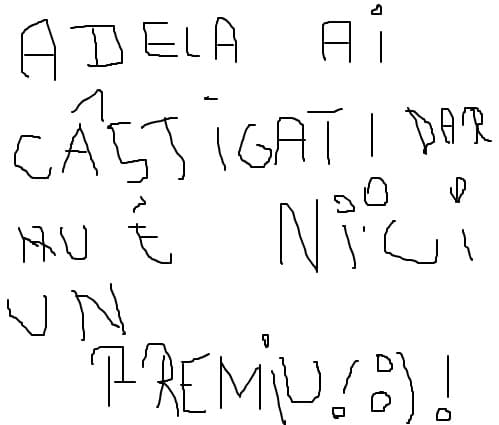 ADELA AI
CÂSTIGATI DAR
NU É NICI
UN
PREMIU!:)!